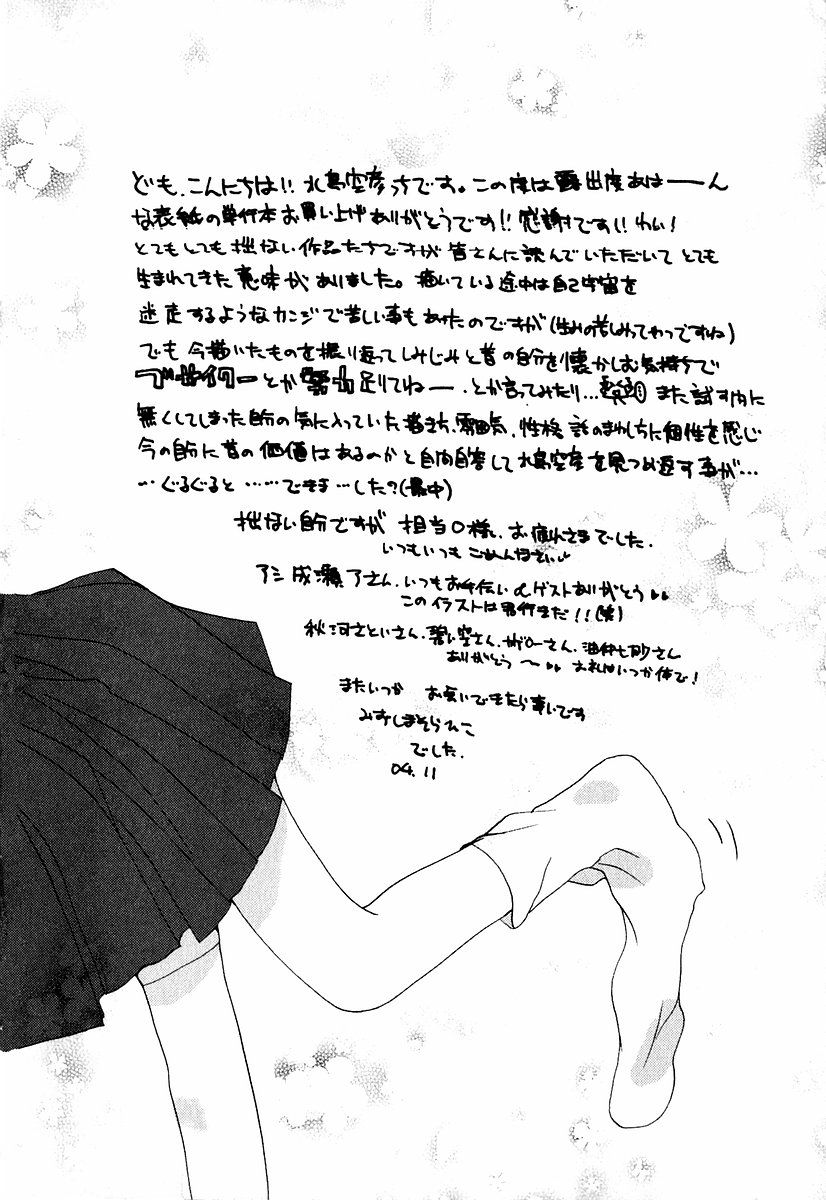 ども、こんにちは!! 水島空彦っちです。この度は露出度あは——ん
な表紙の単行本お買い上げありがとうです!! 感謝です!! わい!
とてもとても拙ない作品たちですが皆さんに読んでいただいてとても
生まれてきた意味がありました。描いている途中は自己宇宙を
迷走するようなカンジで苦しい事もあったのですが(生みの苦しみってやつですね)
でも今描いたものを振り返ってしみじみと昔の自分を懐かしむ気持ちで
とか 足りてねー、とか言ってみたり… また
無くしてしまった自分の気に入っていた描き方、雰囲気、性格、話のまわしちに個性を感じ
今の自分に昔の価値はあるのかと自問自答して水島空彦を見つめ返す事が…
…ぐるぐると……できま…した?(最中)
拙ない自分ですが 担当O様、お疲れさまでした。
いつもいつもごめんなさい
アシ 成瀬了さん、いつもお手伝い&ゲストありがとう
このイラストは 行きだ!!(笑)
秋河さといさん、碧い空さん、 さん、 さん
ありがとう〜 お礼はいつか体で!
またいつか お会いできたら幸いです
みずしまそらひこ
でした。
04.11